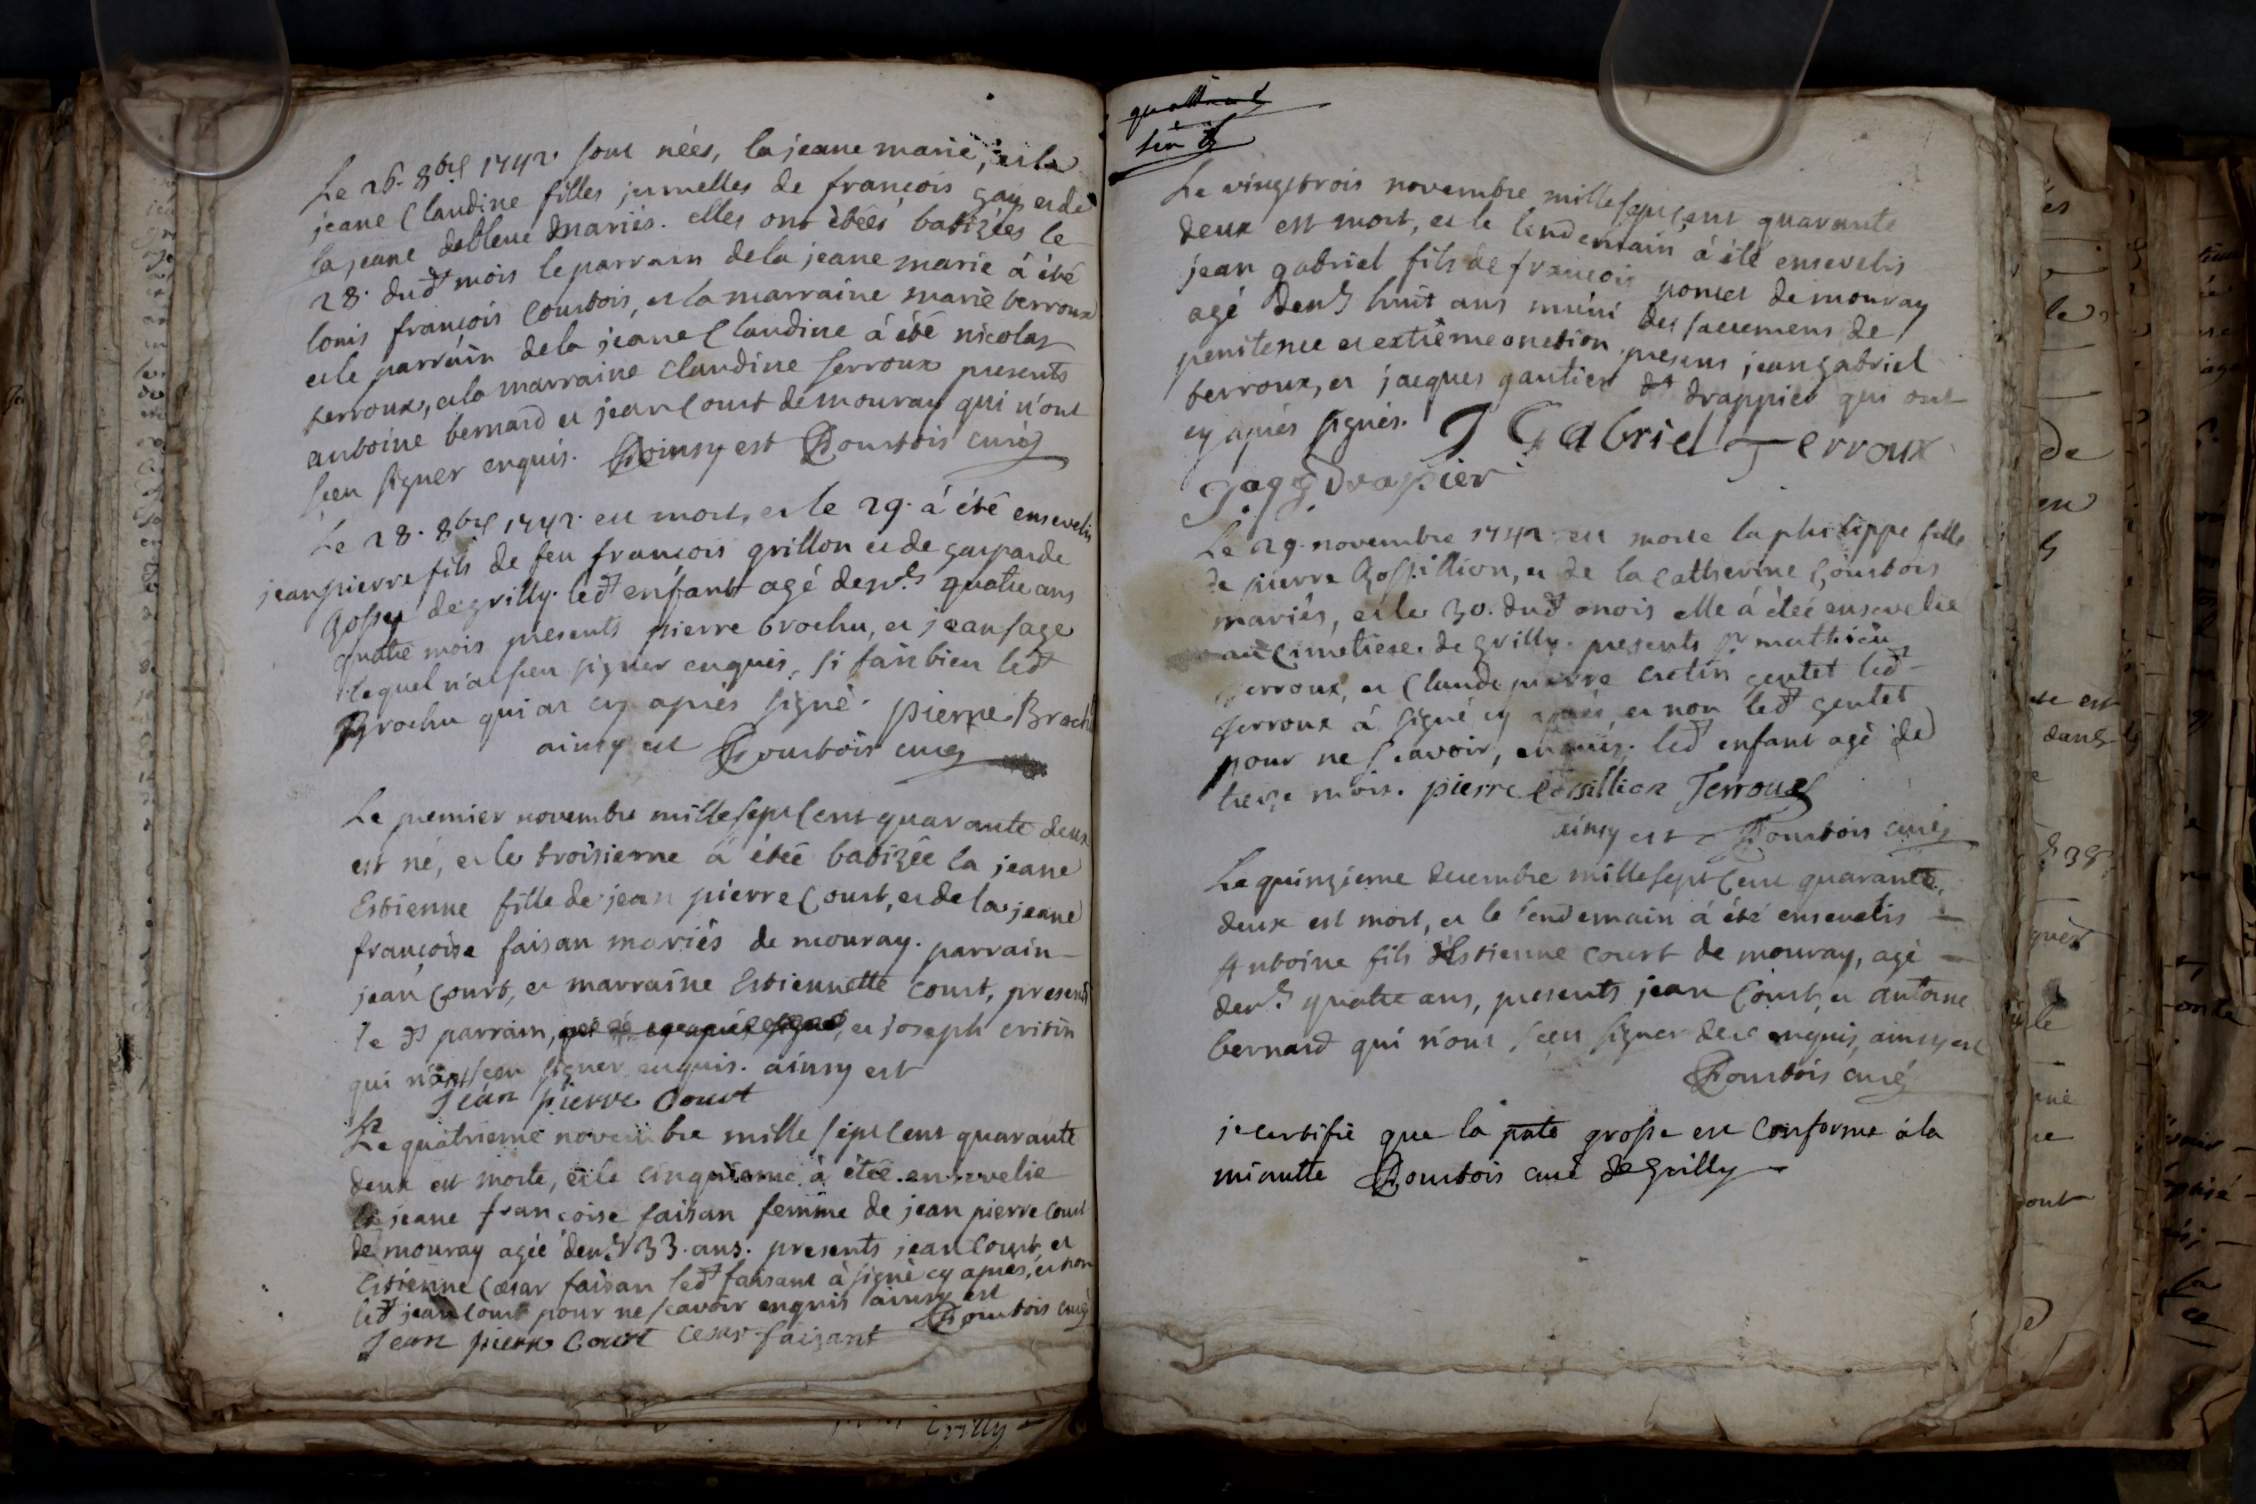 Le 26. 8bre 1742. sont nées, la jeane marie, et la
jeane Claudine filles jumelles de françois gay et de
la jeane mariés. elles ont étéés batizées le
28. dud mois le parrain de la jeane marie à été
louis françois Courtois, et la marraine marie terroux
et le parrain de la jeane Claudine à été nicolas
terroux, et la marraine Claudine terroux presents
antoine bernard et jean Court de mouray qui n'ont
sceu signer enquis. ainsy est Courtois curé
Le 28. 8bre 1742. est mort, et le 29. à été ensevelis
jean pierre fils de feu françois grillon et de gasparde
gosset de grilly. led enfant agé denv. quatre ans
quatre mois presents pierre brochu, et jean sage
lequel n'a sceu signer enquis, si fait bien led
Brochu qui a cy aprés signé. pierre Brochu
ainsy est Courtois curé
Le premier novembre mille sept Cent quarante deux
est né, et le troisieme à étéé batizée la jeane
Estienne fille de jean pierre Court, et de la jeane
françoise faisan mariés de mouray. parrain
jean Court, et marraine Estiennette Court, presents
le d parrain, et joseph critin
qui n'ont sceu signer enquis. ainsy est
Jean pierre Court
Le quatrieme novembre mille sept Cent quarante
deux est morte, et le cinquieme à étéé ensevelie
la jeane françoise faisan femme de jean pierre Court
de mouray agée denv. 33. ans. presents jean Court, et
Estienne Cæsar faisan led faisant à signé cy aprés, et non
led jean Court pour ne scavoir enquis ainsy est
Jean pierre Court cesar faisant Courtois curé
Le vingt trois novembre mille sept Cent quarante
deux est mort, et le lendemain à été ensevelis
jean gabriel fils de françois poncet de mouray
agé denv. huit ans muni des sacremens de
penitence et extrême onction presens jean gabriel
terroux, et jacques gautier dt drappier qui ont
cy aprés signés. J Gabriel Terroux
Jaqs Drapier
Le 29. novembre 1742. est morte la philippe fille
de pierre Gossillion, et de la Catherine Courtois
mariés, et le 30. dud mois elle à étéé ensevelie
au Cimetiere de grilly. presents Sr mathieu
terroux, et Claude pierre cretin gentet led
terroux à signé cy aprés, et non led gentet
pour ne scavoir, enquis. led enfant agé de
treize mois. pierre Terroux
ainsy est Courtois curé
Le quinzieme decembre mille sept Cent quarante
deux est mort, et le lendemain à été ensevelis
Antoine fils d'Estienne Court de mouray, agé
denv. quatre ans, presents jean Court, et antoine
bernard qui n'ont sceu signer de ce enquis, ainsy est
Courtois curé
je certifie que la grosse est Conforme à la
minutte Courtois curé de grilly